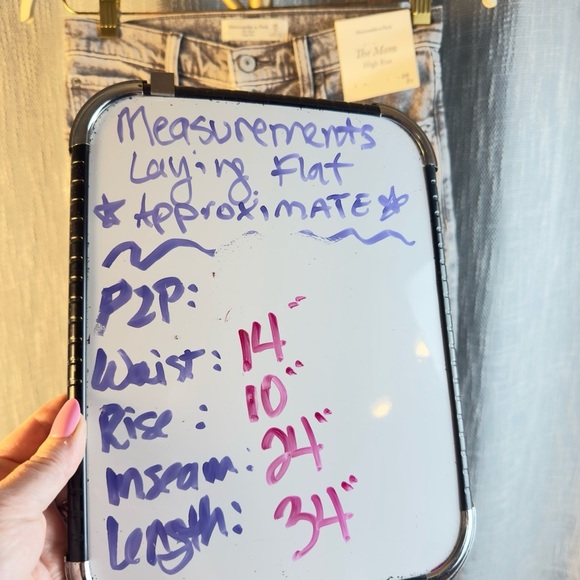 Abercrombie & Fitch
Abercrombie & Fitch
The Mom
High Rise
Measurements
Laying Flat
☆ ApproxiMATE ☆
P2P:
Waist: 14"
Rise: 10"
Inseam: 24"
Length: 34"